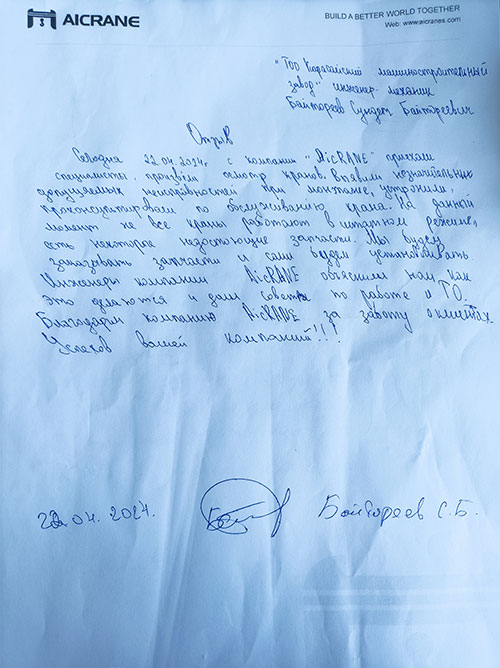 AICRANE
BUILD A BETTER WORLD TOGETHER
Web: www.aicranes.com
"ТОО Карагайский машиностроительный
завод" инженер-механик
Байтореев Сундет Байтореевич
Отзыв
Сегодня 22.04.2024г. с компании "AiCRANE" приехали
специалисты, произвели осмотр кранов. Выявили незначительных
допущаемых неисправностей при монтаже, устронили,
проконсультировали по обслуживанию крана. На данной
момент не все краны работают в штатном режиме,
есть некоторые недостоющие запчасти. Мы будем
заказывать запчасти и сами будем устанавливать
Инженеры компании AiCRANE объяснили нам как
это делаются и дали советы по работе и ТО.
Благодарим компанию AiCRANE за заботу о клиентах.
Успехов вашей компаний!!!
22.04.2024.
Байтореев С.Б.